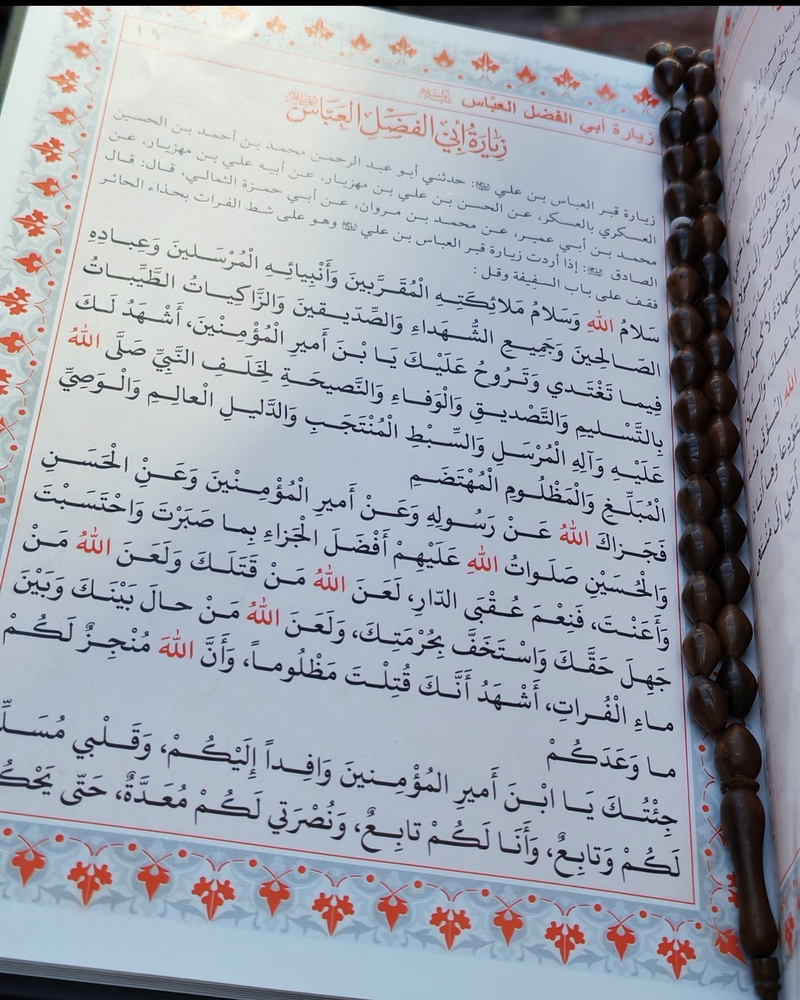 زيارة أبي الفضل العباس عليه السلام
١٩
زِيَارَةُ أَبِي الفَضْلِ العَبَّاس
زيارة قبر العباس بن علي : حدثني أبو عبد الرحمن محمد بن أحمد بن الحسين
العسكري بالعسكر، عن الحسن بن علي بن مهزيار، عن أبيه علي بن مهزيار، عن
محمد بن أبي عمير، عن محمد بن مروان، عن أبي حمزة الثمالي، قال: قال
الصادق : إذا أردت زيارة قبر العباس بن علي وهو على شط الفرات بحذاء الحائر
فقف على باب السقيفة وقل :
سَلامُ اللهِ وَسَلامُ مَلائِكَتِهِ الْمُقَرَّبينَ وَأَنْبِيائِهِ الْمُرْسَلينَ وَعِبادِهِ
الصّالِحينَ وَجَميعِ الشُّهَداءِ وَالصِّدّيقينَ وَالزَّاكِياتُ الطَّيِّباتُ
فيما تَغْتَدي وَتَرُوحُ عَلَيْكَ يَا بْنَ أَميرِ الْمُؤْمِنينَ، أَشْهَدُ لَكَ
بِالتَّسْليمِ وَالتَّصْديقِ وَالْوَفاءِ وَالنَّصيحَةِ لِخَلَفِ النَّبِيِّ صَلَّى اللهُ
عَلَيْهِ وَآلِهِ الْمُرْسَلِ وَالسِّبْطِ الْمُنْتَجَبِ وَالدَّليلِ الْعالِمِ وَالْوَصِيِّ
الْمُبَلِّغِ وَالْمَظْلُومِ الْمُهْتَضَمِ
فَجَزاكَ اللهُ عَنْ رَسُولِهِ وَعَنْ أَميرِ الْمُؤْمِنينَ وَعَنْ الْحَسَنِ
وَالْحُسَيْنِ صَلَواتُ اللهِ عَلَيهِمْ أَفْضَلَ الْجَزاءِ بِما صَبَرْتَ وَاحْتَسَبْتَ
وَأَعَنْتَ، فَنِعْمَ عُقْبَى الدّارِ، لَعَنَ اللهُ مَنْ قَتَلَكَ وَلَعَنَ اللهُ مَنْ
جَهِلَ حَقَّكَ وَاسْتَخَفَّ بِحُرْمَتِكَ، وَلَعَنَ اللهُ مَنْ حالَ بَيْنَكَ وَبَيْنَ
ماءِ الْفُراتِ، أَشْهَدُ أَنَّكَ قُتِلْتَ مَظْلُوماً، وَأَنَّ اللهَ مُنْجِزٌ لَكُمْ
ما وَعَدَكُمْ
جِئْتُكَ يَا ابْنَ أَميرِ المُؤْمِنينَ وَافِداً إِلَيْكُمْ، وَقَلْبي مُسَلِّ
لَكُمْ وَتابِعٌ، وَأَنَا لَكُمْ تابِعٌ، وَنُصْرَتي لَكُمْ مُعَدَّةٌ، حَتّى يَحْكُ